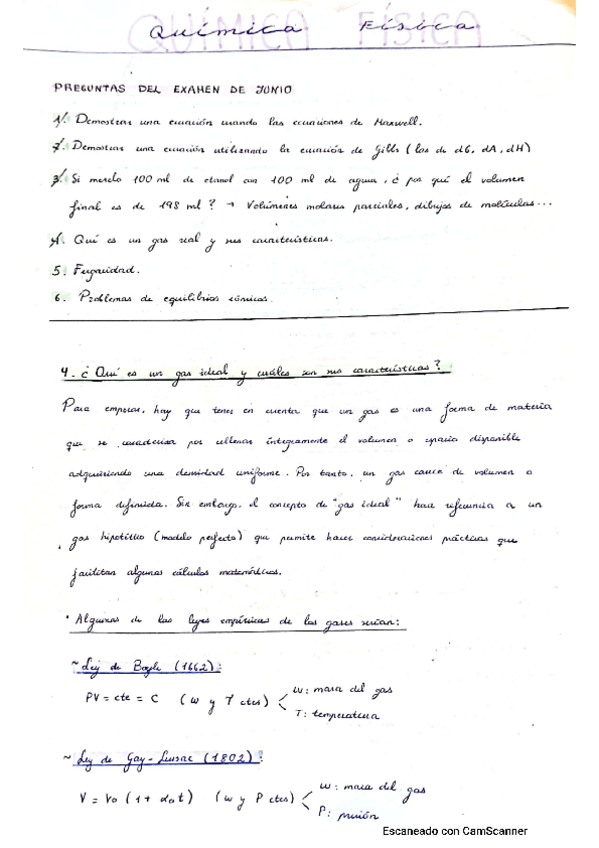 Química Física
PREGUNTAS DEL EXAMEN DE JUNIO
1. Demostrar una ecuación usando las ecuaciones de Maxwell.
2. Demostrar una ecuación utilizando la ecuación de Gibbs (las de dG, dA, dH)
3. Si mezclo 100 ml de etanol con 100 ml de agua, ¿por qué el volumen
final es de 198 ml? → Volúmenes molares parciales, dibujos de moléculas...
4. Qué es un gas real y sus características.
5. Fugacidad.
6. Problemas de equilibrios iónicos.
4. ¿Qué es un gas ideal y cuáles son sus características?
Para empezar, hay que tener en cuenta que un gas es una forma de materia
que se caracteriza por rellenar íntegramente el volumen o espacio disponible
adquiriendo una densidad uniforme. Por tanto, un gas carece de volumen o
forma definida. Sin embargo, el concepto de "gas ideal" hace referencia a un
gas hipotético (modelo perfecto) que permite hacer consideraciones prácticas que
facilitan algunos cálculos matemáticos.
• Algunas de las leyes empíricas de los gases serían:
~ Ley de Boyle (1662):
PV = cte = C (w y T ctes) < w: masa del gas
T: temperatura
~ Ley de Gay-Lussac (1802):
V = V0 (1 + α0t) (w y P ctes) < w: masa del gas
P: presión
Escaneado con CamScanner